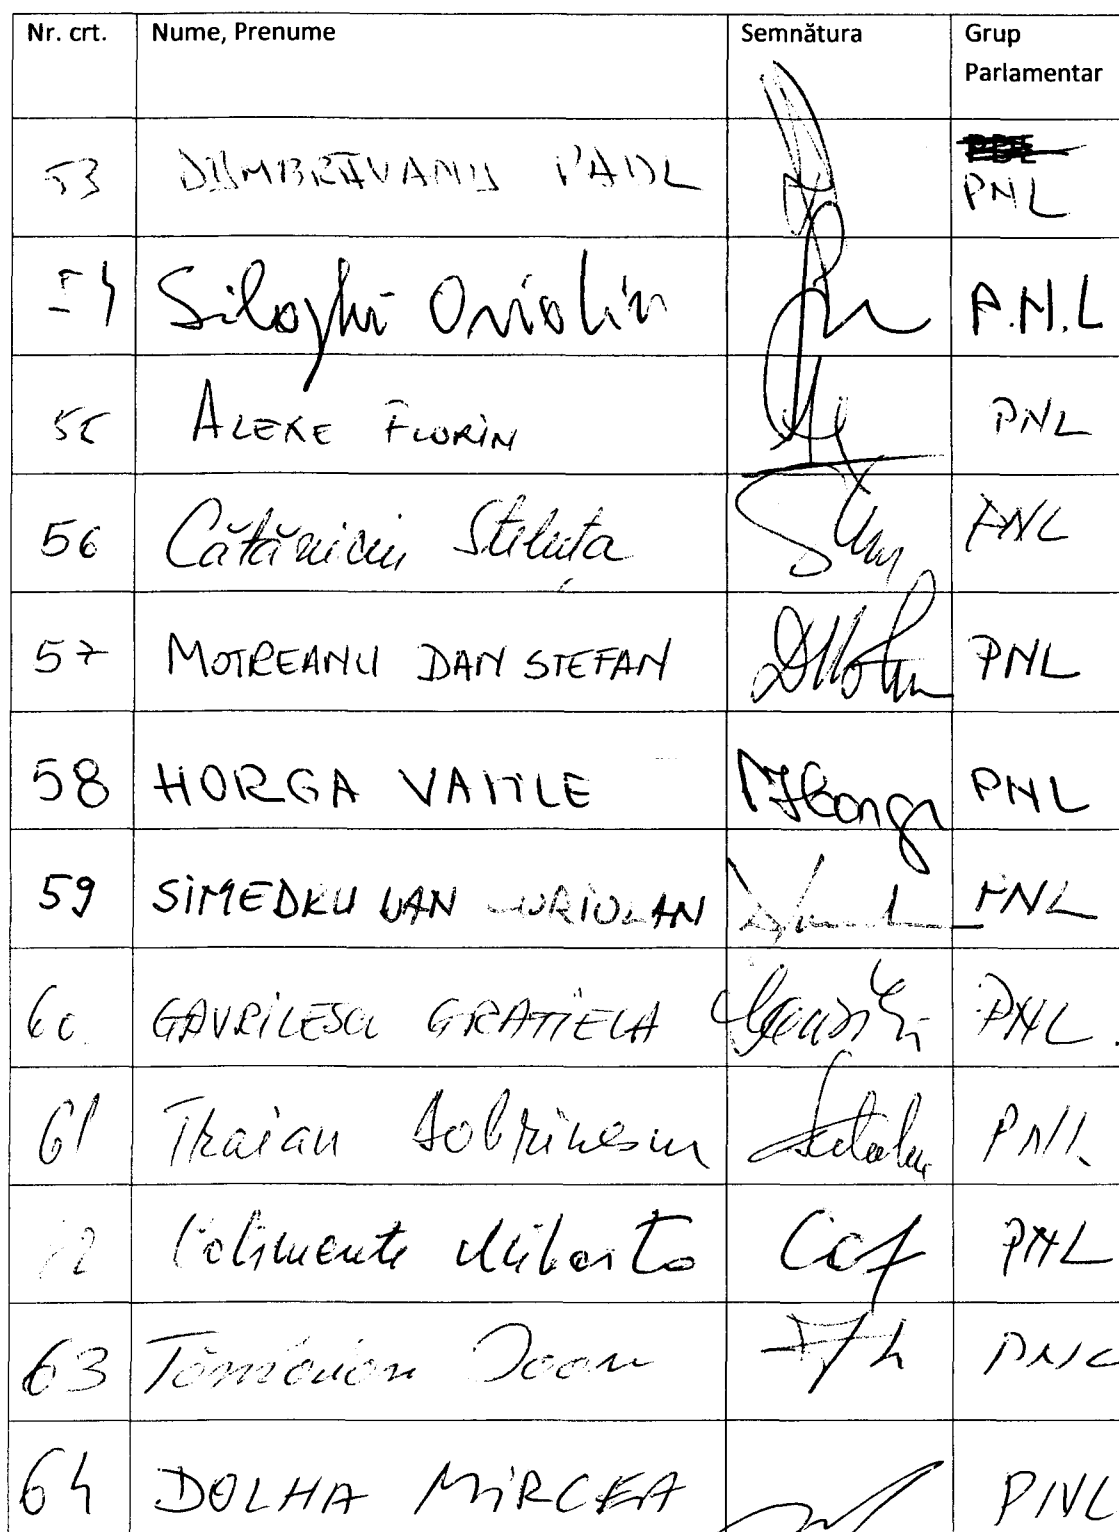 Nr. crt. Nume, Prenume Semnătura Grup
Parlamentar
53 DUMBRĂVANU PAUL PNL
54 Siloghi Ovidiu P.N.L
55 ALEXE FLORIN PNL
56 Cătăniciu Steluța PNL
57 MOTREANU DAN STEFAN PNL
58 HORGA VASILE PNL
59 SIMEDRU DAN CORIOLAN PNL
60 GAVRILESCU GRATIELA PNL
61 Traian Dobrinescu PNL
PNL
63 Tămâian Ioan PNL
64 DOLHA MIRCEA PNL